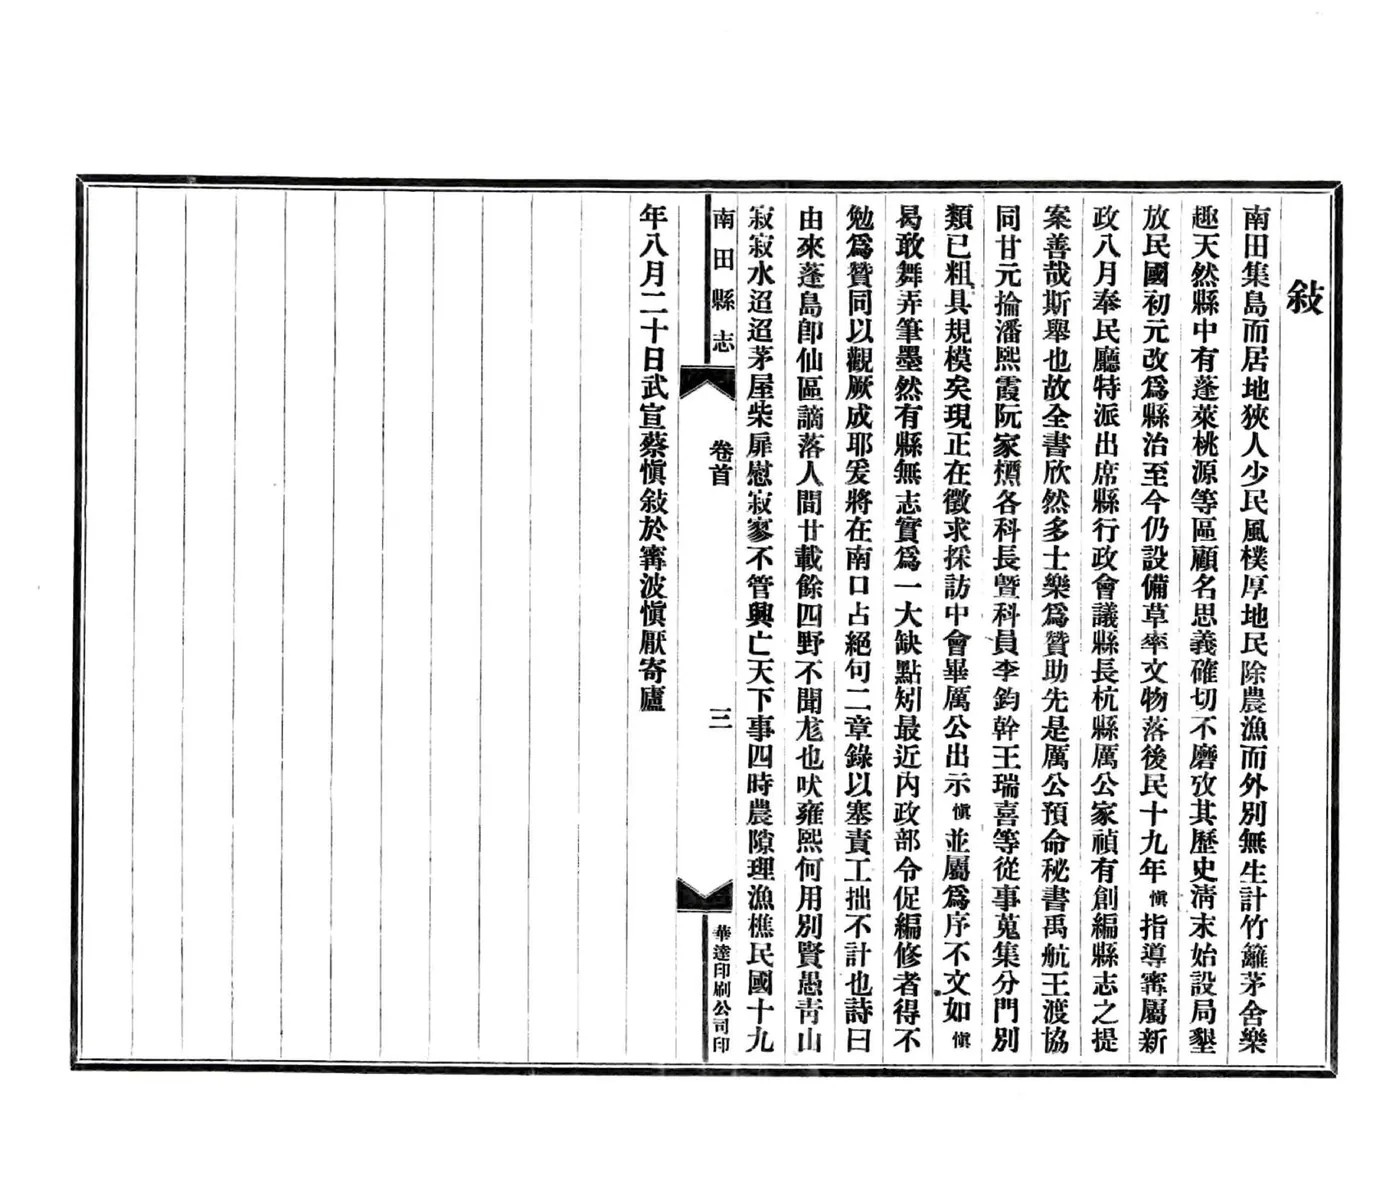 敍
南田集島而居地狹人少民風樸厚地民除農漁而外別無生計竹籬茅舍樂
趣天然縣中有蓬萊桃源等區顧名思義確切不磨攷其歷史淸末始設局墾
放民國初元改爲縣治至今仍設備草率文物落後民十九年愼指導寗屬新
政八月奉民廳特派出席縣行政會議縣長杭縣厲公家禎有創編縣志之提
案善哉斯舉也故全書欣然多士樂爲贊助先是厲公預命秘書禹航王渡協
同甘元掄潘熙霞阮家槱各科長曁科員李鈞幹王瑞喜等從事蒐集分門別
類已粗具規模矣現正在徵求採訪中會畢厲公出示愼並屬爲序不文如愼
曷敢舞弄筆墨然有縣無志實爲一大缺點矧最近內政部令促編修者得不
勉爲贊同以觀厥成耶爰將在南口占絕句二章錄以塞責工拙不計也詩曰
由來蓬島卽仙區謫落人間廿載餘四野不聞尨也吠雍熙何用別賢愚靑山
寂寂水迢迢茅屋柴扉慰寂寥不管興亡天下事四時農隙理漁樵民國十九
年八月二十日武宣蔡愼敍於寗波愼厭寄廬
南田縣志
卷首
三
華達印刷公司印